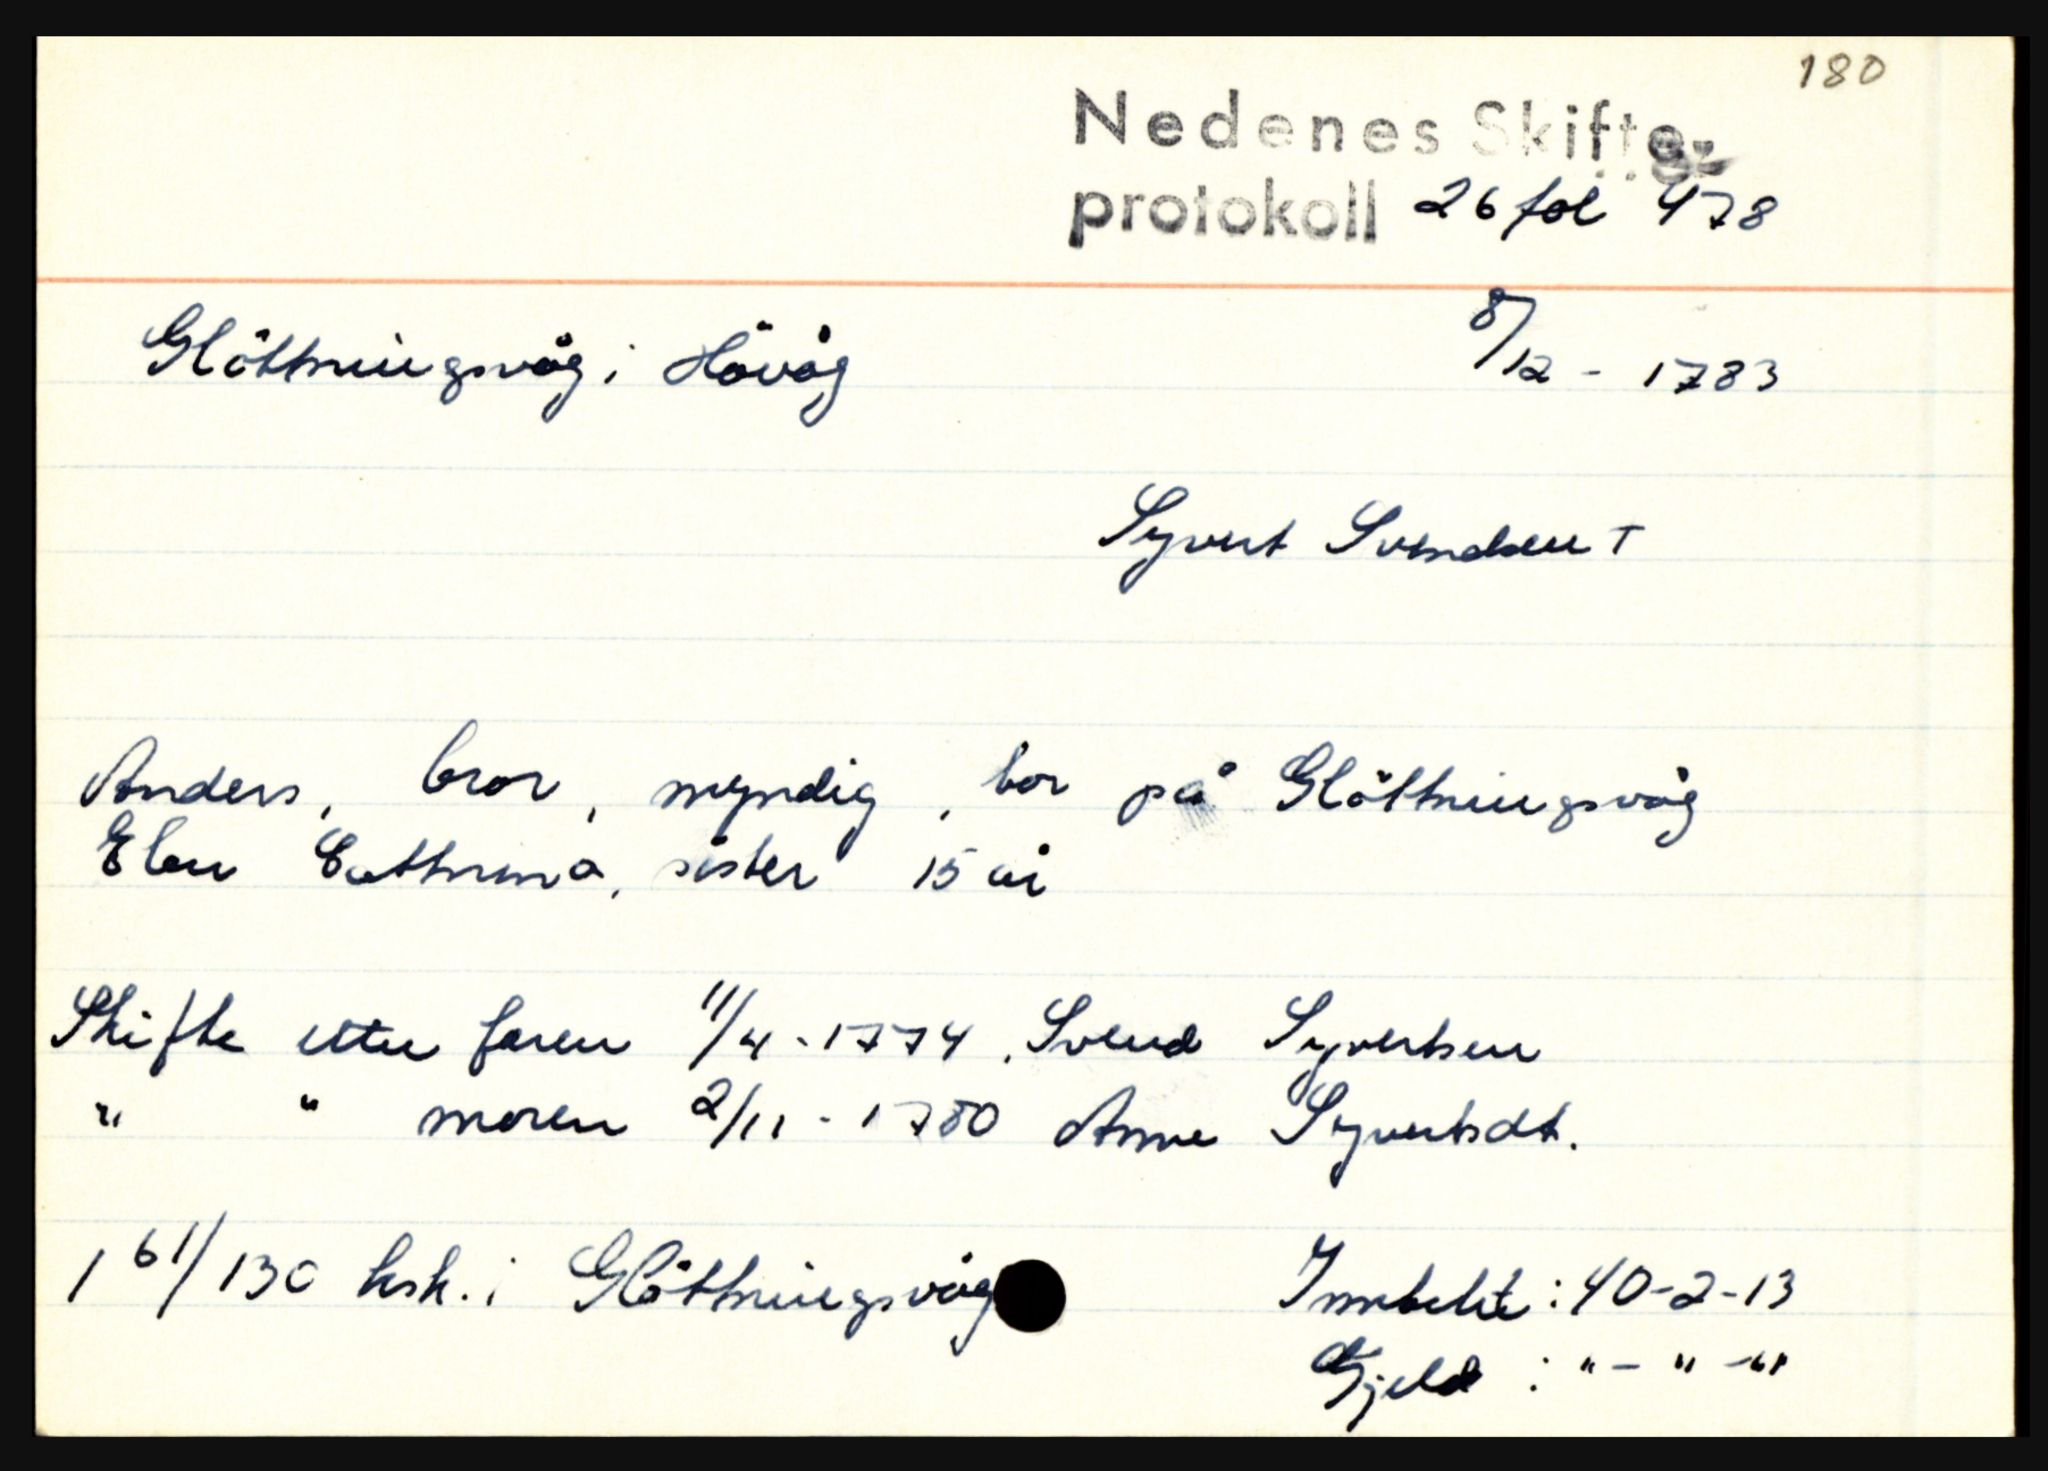 180
Nedenes Skifte-
protokoll 26 fol 478
Glöttningsvåg i Hövåg 8/12 - 1783
Syvert Svendsen †
Anders, bror, myndig, bor på Glöttningsvåg
Elen Cathrina, sister 15 år
Skifte etter faren 11/4 - 1774. Svend Syvertsen
" " moren 2/11 - 1780 Anne Syvertsdt.
1 61/130 ksk. i Glöttningsvåg Innbehte: 40-2-13
Gjeld : " - " - "